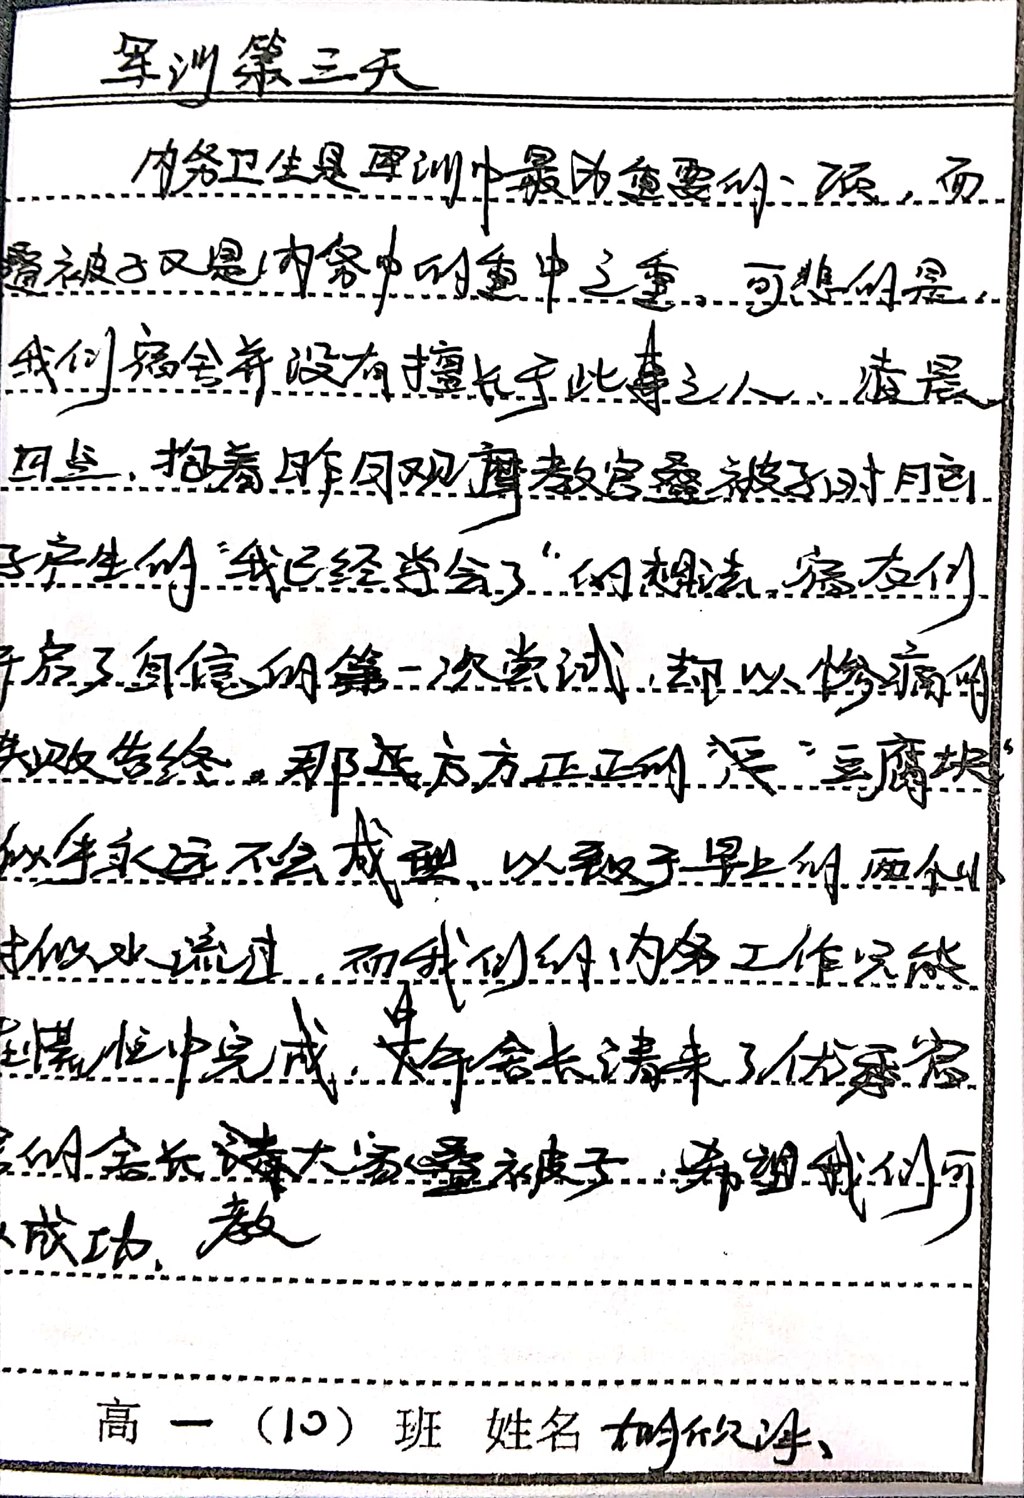 军训第三天
内务卫生是军训中最为重要的一项，而
叠被子又是内务中的重中之重。可悲的是，
我们宿舍并没有擅长于此事之人、凌晨
四点，抱着昨日观摩教官叠被子时脑
子产生的“我已经学会了“的想法，宿友们
开启了自信的第一次尝试，却以惨痛的
失败告终。那近方方正正的“豆腐块“
似乎永远不会成型，以致于早上的两个小
时似水流过，而我们的内务工作只能
在慌忙中完成，中午舍长请来了优秀宿
舍的舍长教大家叠被子，希望我们可
以成功。
高一（10）班 姓名 胡欣